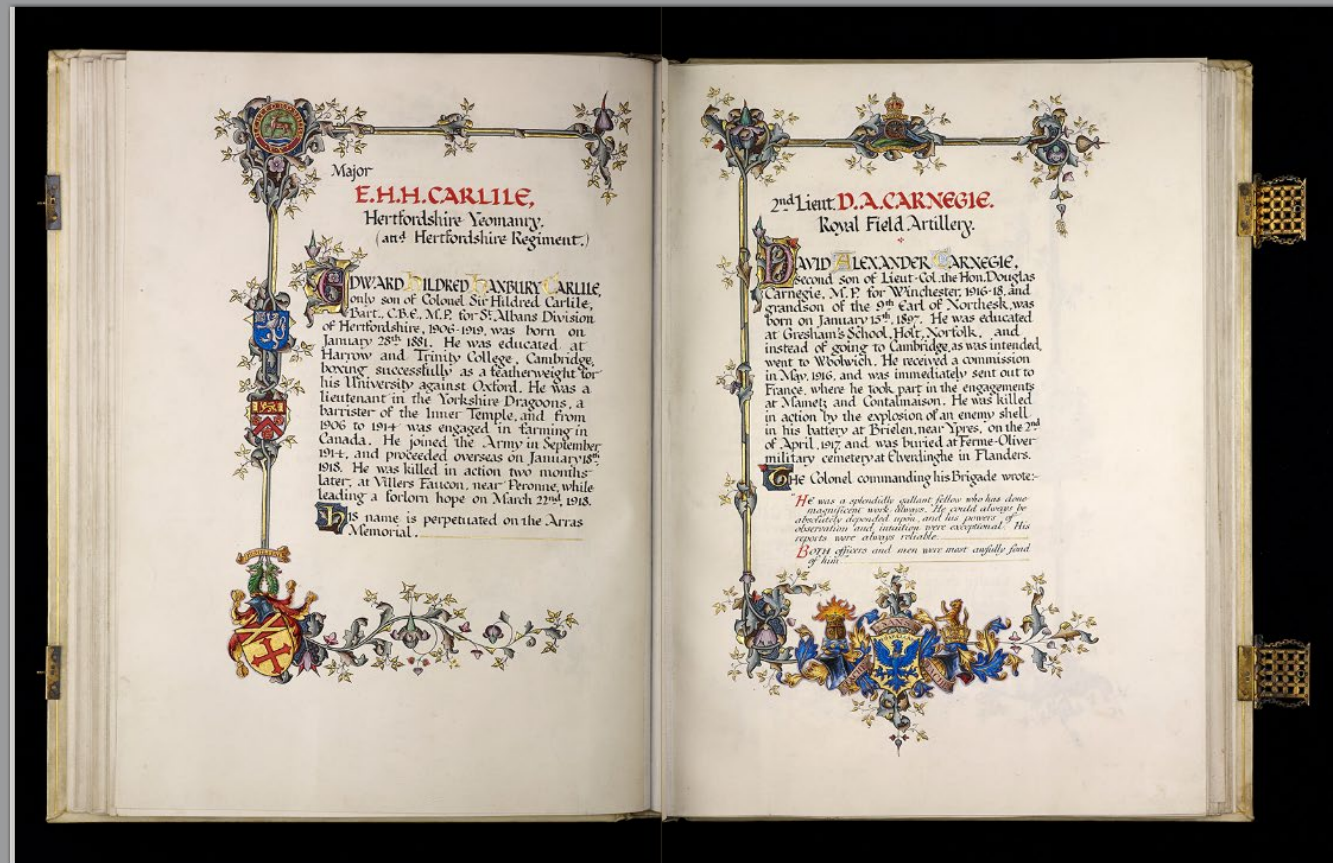 Major
E.H.H. CARLILE,
Hertfordshire Yeomanry.
(and Hertfordshire Regiment.)
EDWARD HILDRED HANBURY CARLILE,
only son of Colonel Sir Hildred Carlile,
Bart., C.B.E., M.P. for St. Albans Division
of Hertfordshire, 1906-1919, was born on
January 28th 1881. He was educated at
Harrow and Trinity College, Cambridge,
boxing successfully as a featherweight for
his University against Oxford. He was a
lieutenant in the Yorkshire Dragoons, a
barrister of the Inner Temple, and from
1906 to 1914 was engaged in farming in
Canada. He joined the Army in September
1914, and proceeded overseas on January 18th,
1918. He was killed in action two months
later, at Villers Faucon, near Peronne, while
leading a forlorn hope on March 22nd, 1918.
His name is perpetuated on the Arras
Memorial.
2nd Lieut. D.A. CARNEGIE.
Royal Field Artillery.
DAVID ALEXANDER CARNEGIE,
second son of Lieut-Col. the Hon. Douglas
Carnegie, M.P. for Winchester, 1916-18, and
grandson of the 9th Earl of Northesk, was
born on January 15th, 1897. He was educated
at Gresham's School, Holt, Norfolk, and
instead of going to Cambridge, as was intended,
went to Woolwich. He received a commission
in May, 1916, and was immediately sent out to
France, where he took part in the engagements
at Mametz and Contalmaison. He was killed
in action by the explosion of an enemy shell
in his battery at Brielen, near Ypres, on the 2nd
of April, 1917, and was buried at Ferme-Olivier
military cemetery at Elverdinghe in Flanders.
The Colonel commanding his Brigade wrote:-
"He was a splendidly gallant fellow who has done
magnificent work always. He could always be
absolutely depended upon, and his powers of
observation and intuition were exceptional. His
reports were always reliable.
BOTH officers and men were most awfully fond
of him.